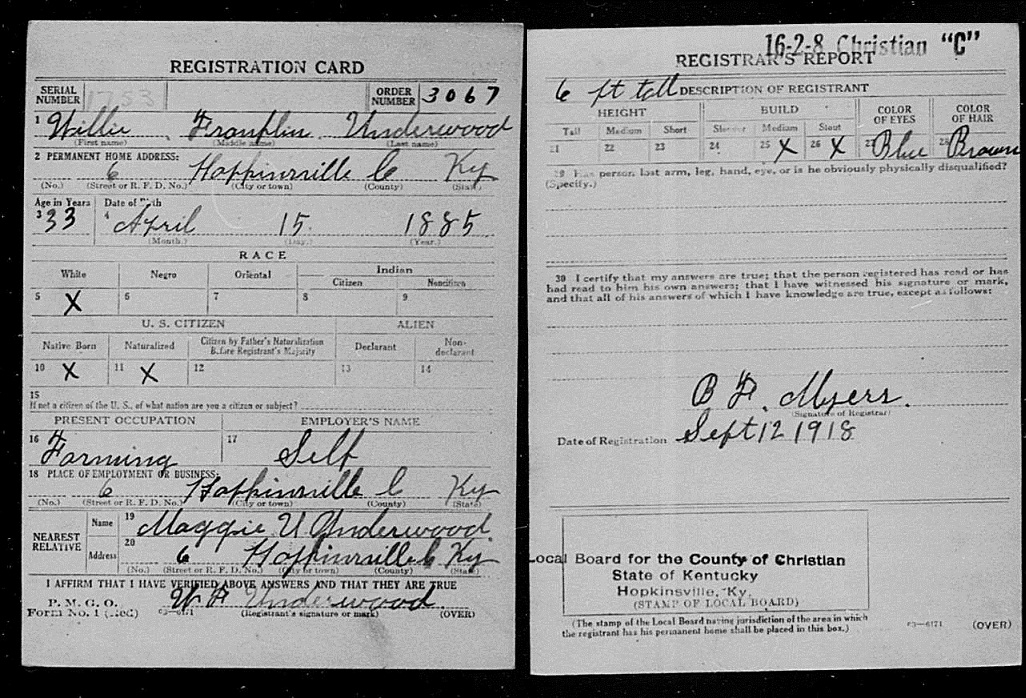 REGISTRATION CARD
SERIAL NUMBER 1753 ORDER NUMBER 3067
1 Willie Franklin Underwood
(First name) (Middle name) (Last name)
2 PERMANENT HOME ADDRESS:
6 Hopkinsville C Ky
(No.) (Street or R. F. D. No.) (City or town) (County) (State)
Age in Years Date of Birth
3 33 4 April 15. 1885
(Month.) (Day.) (Year.)
RACE
White Negro Oriental Indian
Citizen Noncitizen
5 X 6 7 8 9
U. S. CITIZEN ALIEN
Native Born Naturalized Citizen by Father's Naturalization Before Registrant's Majority Declarant Non-declarant
10 X 11 X 12 13 14
15
If not a citizen of the U. S., of what nation are you a citizen or subject?
PRESENT OCCUPATION EMPLOYER'S NAME
16 Farming 17 Self
18 PLACE OF EMPLOYMENT OR BUSINESS:
6 Hopkinsville C Ky
(No.) (Street or R. F. D. No.) (City or town) (County) (State)
NEAREST RELATIVE
Name 19 Maggie U Underwood
Address 20 6 Hopkinsville C Ky
(No.) (Street or R. F. D. No.) (City or town) (County) (State)
I AFFIRM THAT I HAVE VERIFIED ABOVE ANSWERS AND THAT THEY ARE TRUE
P. M. G. O.
Form No. 1 (Red) 03-6171 W F Underwood
(Registrant's signature or mark) (OVER)
16-2-8 Christian "C"
REGISTRAR'S REPORT
6 ft tall DESCRIPTION OF REGISTRANT
HEIGHT BUILD COLOR OF EYES COLOR OF HAIR
Tall Medium Short Slender Medium Stout
21 22 23 24 25 X 26 X 27 Blue 28 Brown
29 Has person lost arm, leg, hand, eye, or is he obviously physically disqualified?
(Specify.)
30 I certify that my answers are true; that the person registered has read or has
had read to him his own answers; that I have witnessed his signature or mark,
and that all of his answers of which I have knowledge are true, except as follows:
B F. Myers.
(Signature of Registrar)
Date of Registration Sept 12 1918
Local Board for the County of Christian
State of Kentucky
Hopkinsville, Ky.
(STAMP OF LOCAL BOARD)
(The stamp of the Local Board having jurisdiction of the area in which
the registrant has his permanent home shall be placed in this box.)
03-6171 (OVER)